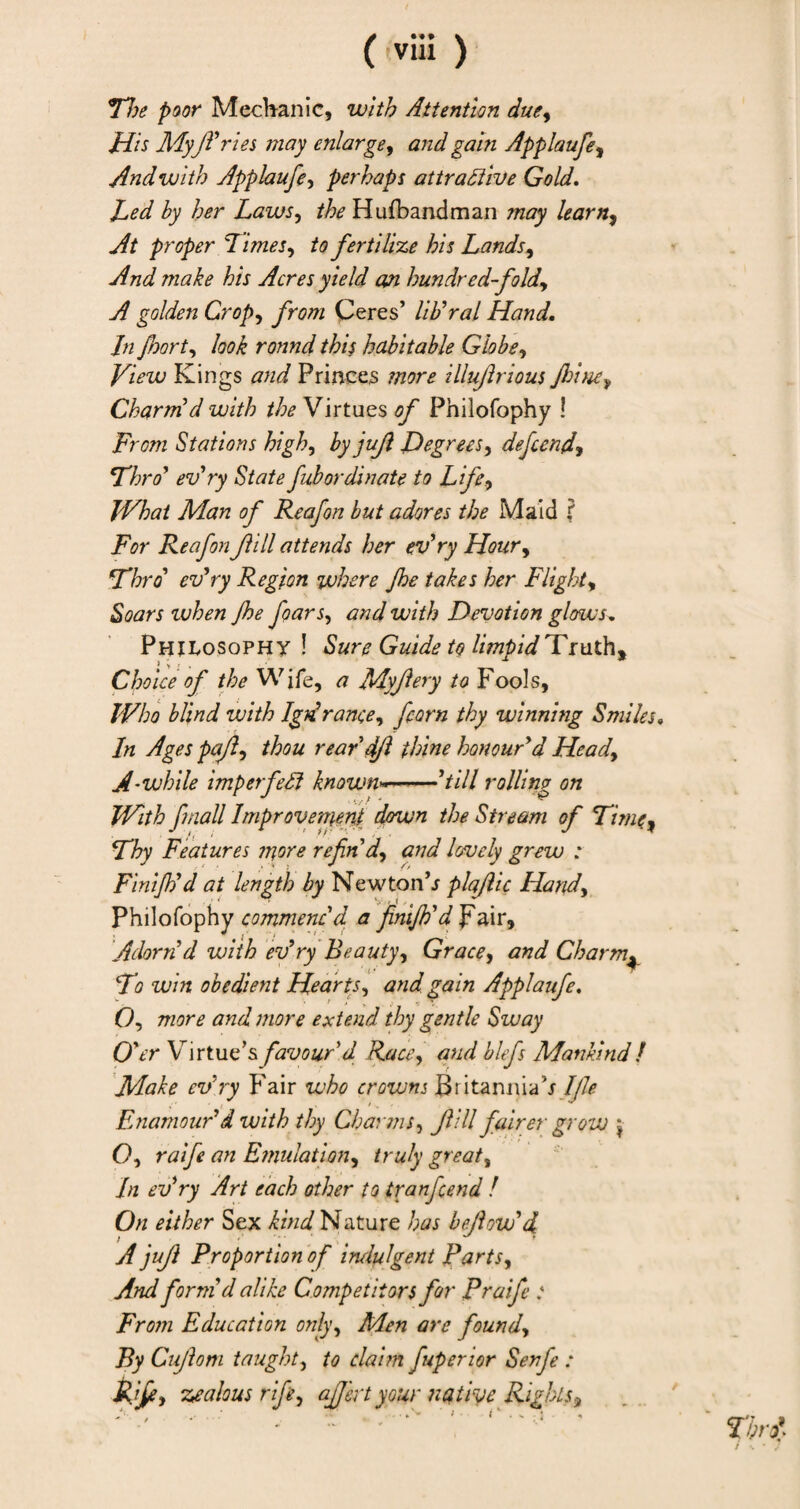 ( viii )
The poor Mechanic, with Attention due,
His Myſt'ries may enlarge, and gain Applauſe,
And with Applauſe, perhaps attractive Gold.
Led by her Laws, the Huſbandman may learn,
At proper Times, to fertilize his Lands,
And make his Acres yield an hundred-fold,
A golden Crop, from Ceres' lib'ral Hand.
In ſhort, look ronnd this habitable Globe,
View Kings and Princes more illuſtrious ſhine,
Charm'd with the Virtues of Philoſophy !
From Stations high, by juſt Degrees, deſcend,
Thro' ev'ry State ſubordinate to Life,
What Man of Reaſon but adores the Maid ?
For Reaſon ſtill attends her ev'ry Hour,
Thro' ev'ry Region where ſhe takes her Flight,
Soars when ſhe ſoars, and with Devotion glows.
PHILOSOPHY ! Sure Guide to limpid Truth,
Choice of the Wiſe, a Myſtery to Fools,
Who blind with Ign'rance, ſcorn thy winning Smiles.
In Ages paſt, thou rear'dſt thine honour'd Head,
A-while imperfect known——'till rolling on
With ſmall Improvement down the Stream of Time,
Thy Features more refin'd, and lovely grew :
Finiſh'd at length by Newton's plaſtic Hand,
Philoſophy commenc'd a finiſh'd Fair,
Adorn'd with ev'ry Beauty, Grace, and Charm,
To win obedient Hearts, and gain Applauſe.
O, more and more extend thy gentle Sway
O'er Virtue's favour'd Race, and bleſs Mankind !
Make ev'ry Fair who crowns Britannia's Iſle
Enamour'd with thy Charms, ſtill fairer grow ;
O, raiſe an Emulation, truly great,
In ev'ry Art each other to tranſcend !
On either Sex kind Nature has beſtow'd
A juſt Proportion of indulgent Parts,
And form'd alike Competitors for Praiſe :
From Education only, Men are found,
By Cuſtom taught, to claim ſuperior Senſe :
Riſe, zealous riſe, aſſert your native Rights,
Thro'